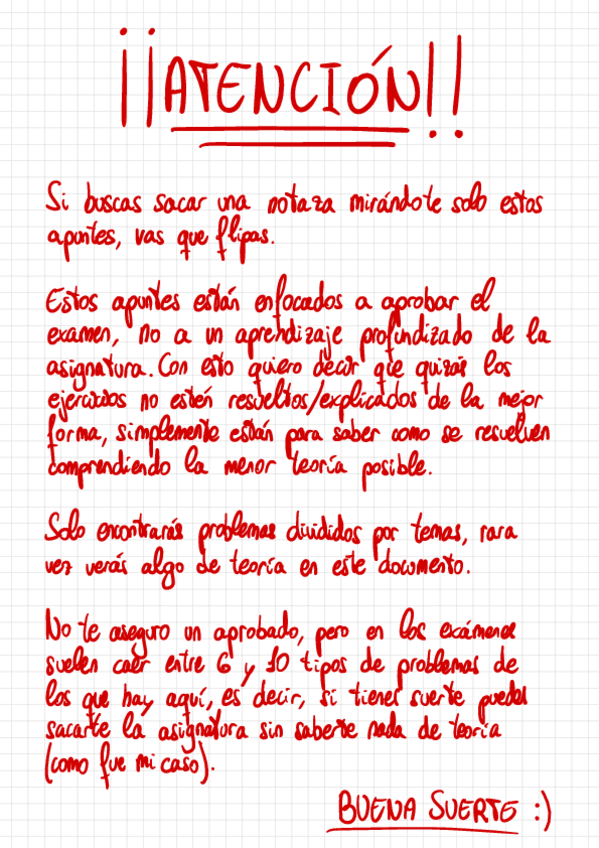 ¡¡ATENCIÓN!!
Si buscas sacar una notaza mirándote solo estos
apuntes, vas que flipas.
Estos apuntes están enfocados a aprobar el
examen, no a un aprendizaje profundizado de la
asignatura. Con esto quiero decir que quizás los
ejercicios no estén resueltos/explicados de la mejor
forma, simplemente están para saber como se resuelven
comprendiendo la menor teoría posible.
Solo encontrarás problemas divididos por temas, rara
vez verás algo de teoría en este documento.
No te aseguro un aprobado, pero en los exámenes
suelen caer entre 6 y 10 tipos de problemas de
los que hay aquí, es decir, si tienes suerte puedes
sacarte la asignatura sin saberte nada de teoría
(como fue mi caso).
BUENA SUERTE :)